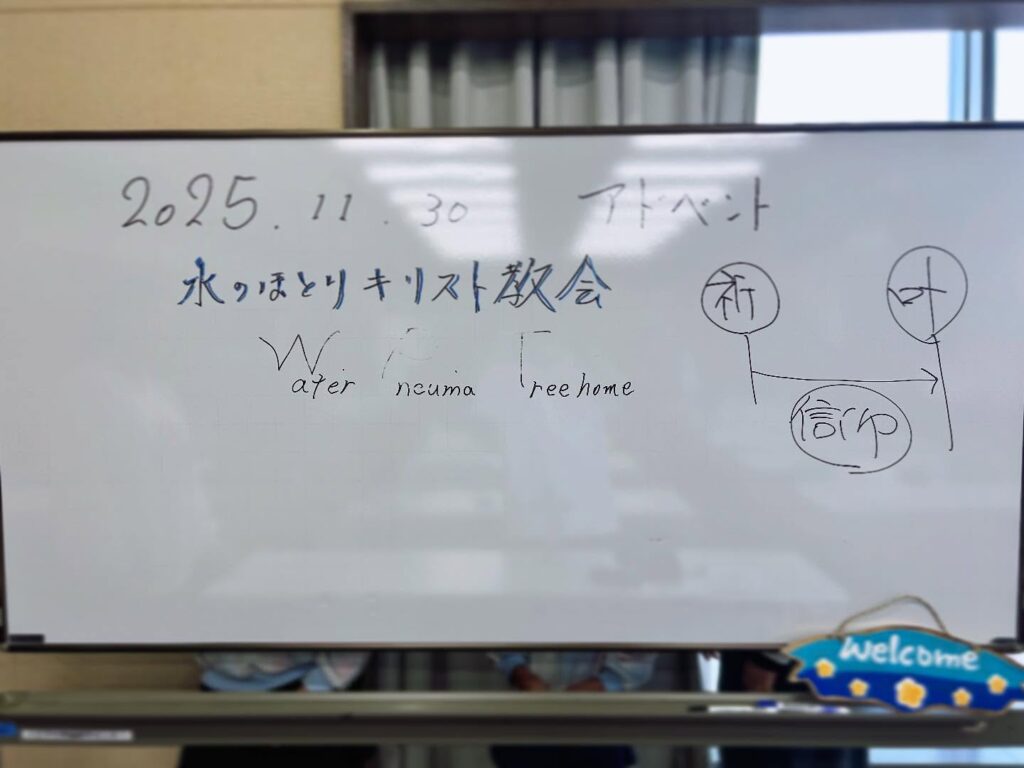 2025.11.30 アドベント
水のほとりキリスト教会
Water Pneuma Treehome
祈 叶
信仰
Welcome